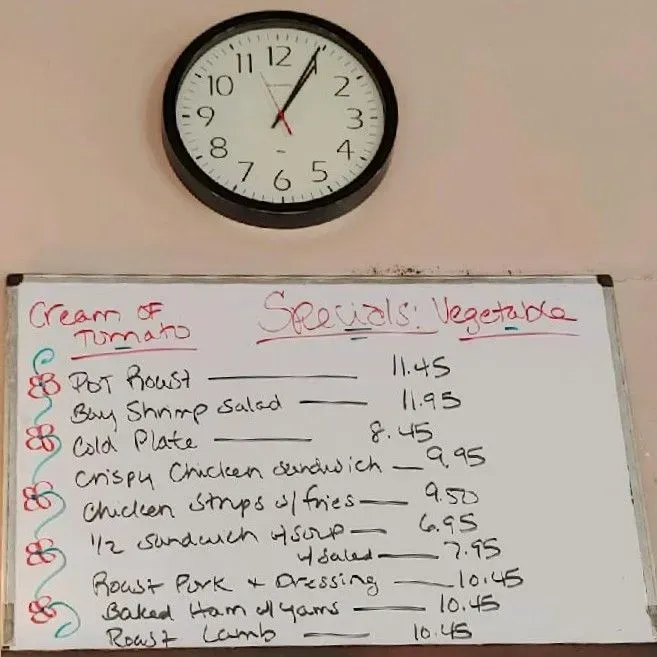 12
11
10
9
8
7
6
5
4
3
2
Cream of Tomato
Specials: Vegetable
Pot Roast 11.45
Bay Shrimp Salad 11.95
Cold Plate 8.45
Crispy Chicken Sandwich 9.95
Chicken Strips w/ fries 9.50
1/2 Sandwich w/ Soup 6.95
w/ Salad 7.95
Roast Pork + Dressing 10.45
Baked Ham w/ yams 10.45
Roast Lamb 10.45